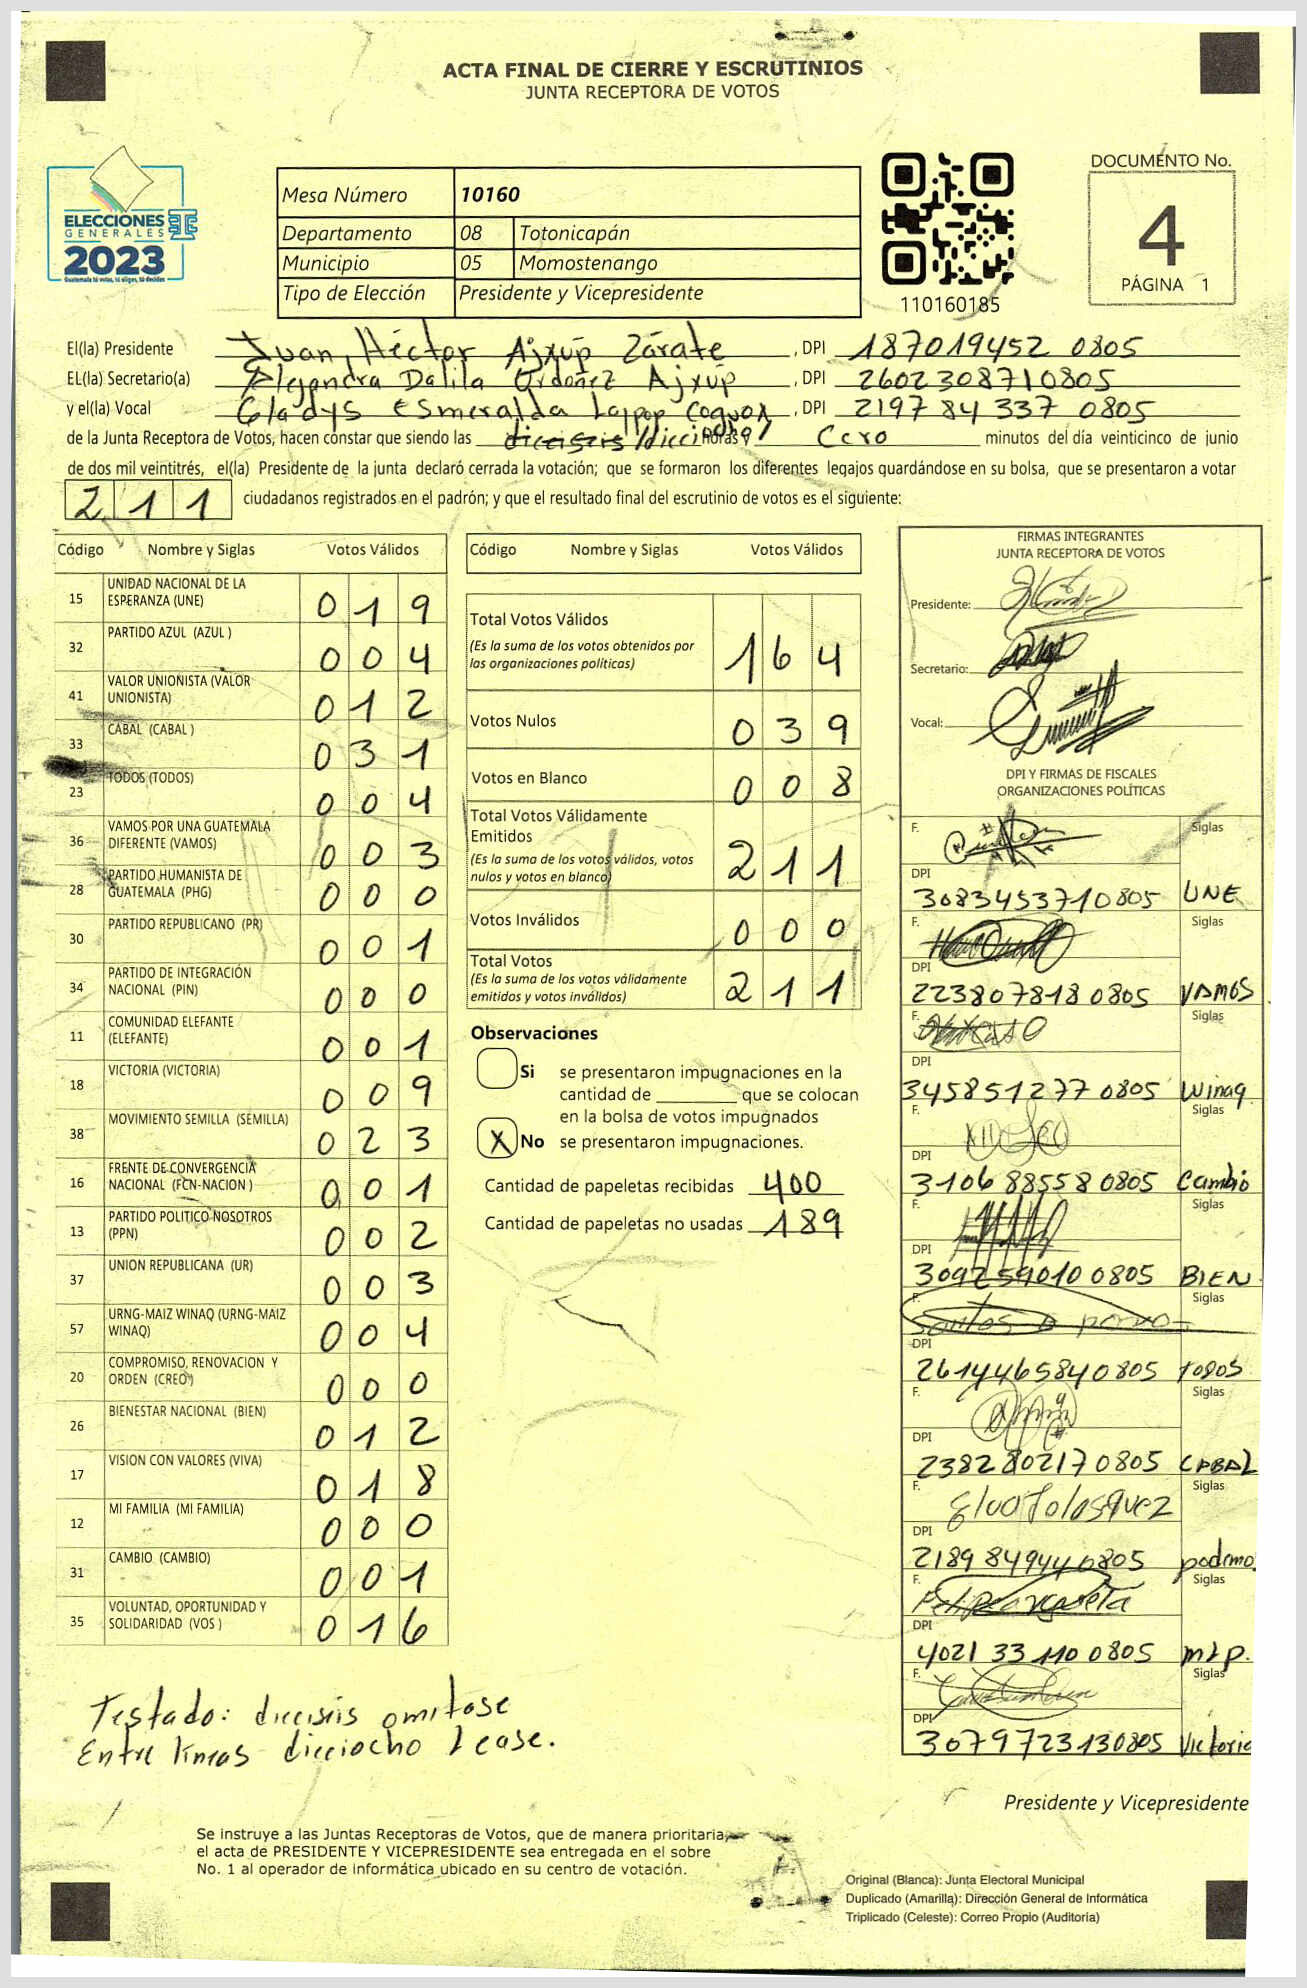 ACTA FINAL DE CIERRE Y ESCRUTINIOS
JUNTA RECEPTORA DE VOTOS
ELECCIONES
GENERALES
2023
Guatemala tú votas, tú eliges, tú decides
Mesa Número 10160
Departamento 08 Totonicapán
Municipio 05 Momostenango
Tipo de Elección Presidente y Vicepresidente
110160185
DOCUMENTO No.
4
PÁGINA 1
El(la) Presidente Juan Héctor Ajxúp Zárate , DPI 187019452 0805
EL(la) Secretario(a) Alejandra Dalila Ordoñez Ajxúp , DPI 2602308710805
y el(la) Vocal Gladys Esmeralda , DPI 2197 84 337 0805
de la Junta Receptora de Votos, hacen constar que siendo las dieciseis dieciocho horas y Cero minutos del día veinticinco de junio
de dos mil veintitrés, el(la) Presidente de la junta declaró cerrada la votación; que se formaron los diferentes legajos guardándose en su bolsa, que se presentaron a votar
211 ciudadanos registrados en el padrón; y que el resultado final del escrutinio de votos es el siguiente:
Código Nombre y Siglas Votos Válidos
15 UNIDAD NACIONAL DE LA ESPERANZA (UNE) 019
32 PARTIDO AZUL (AZUL ) 004
41 VALOR UNIONISTA (VALOR UNIONISTA) 012
33 CABAL (CABAL ) 031
23 TODOS (TODOS) 004
36 VAMOS POR UNA GUATEMALA DIFERENTE (VAMOS) 003
28 PARTIDO HUMANISTA DE GUATEMALA (PHG) 000
30 PARTIDO REPUBLICANO (PR) 001
34 PARTIDO DE INTEGRACIÓN NACIONAL (PIN) 000
11 COMUNIDAD ELEFANTE (ELEFANTE) 001
18 VICTORIA (VICTORIA) 009
38 MOVIMIENTO SEMILLA (SEMILLA) 023
16 FRENTE DE CONVERGENCIA NACIONAL (FCN-NACION ) 001
13 PARTIDO POLITICO NOSOTROS (PPN) 002
37 UNION REPUBLICANA (UR) 003
57 URNG-MAIZ WINAQ (URNG-MAIZ WINAQ) 004
20 COMPROMISO, RENOVACION Y ORDEN (CREO) 000
26 BIENESTAR NACIONAL (BIEN) 012
17 VISION CON VALORES (VIVA) 018
12 MI FAMILIA (MI FAMILIA) 000
31 CAMBIO (CAMBIO) 001
35 VOLUNTAD, OPORTUNIDAD Y SOLIDARIDAD (VOS ) 016
Testado: dieciseis omitase
Entre líneas dieciocho Lease.
Código Nombre y Siglas Votos Válidos
Total Votos Válidos 164
(Es la suma de los votos obtenidos por
las organizaciones políticas)
Votos Nulos 039
Votos en Blanco 008
Total Votos Válidamente
Emitidos 211
(Es la suma de los votos válidos, votos
nulos y votos en blanco)
Votos Inválidos 000
Total Votos 211
(Es la suma de los votos válidamente
emitidos y votos inválidos)
Observaciones
Si se presentaron impugnaciones en la
cantidad de ________ que se colocan
en la bolsa de votos impugnados
X No se presentaron impugnaciones.
Cantidad de papeletas recibidas 400
Cantidad de papeletas no usadas 189
FIRMAS INTEGRANTES
JUNTA RECEPTORA DE VOTOS
Presidente:
Secretario:
Vocal:
DPI Y FIRMAS DE FISCALES
ORGANIZACIONES POLÍTICAS
F. Siglas
DPI
3083453710805 UNE
F. Siglas
DPI
223807818 0805 VAMOS
F. Siglas
DPI
345851277 0805 Winaq
F. Siglas
DPI
3106 88558 0805 Cambio
F. Siglas
DPI
309259010 0805 BIEN
F. Siglas
DPI
2614465840805 TODOS
F. Siglas
DPI
2382802170805 CABAL
F. Siglas
DPI
2189 849440805 podemo
F. Siglas
DPI
4021 33 110 0805 MLP.
F. Siglas
DPI
3079723130805 Victoria
Presidente y Vicepresidente
Se instruye a las Juntas Receptoras de Votos, que de manera prioritaria,
el acta de PRESIDENTE Y VICEPRESIDENTE sea entregada en el sobre
No. 1 al operador de informática ubicado en su centro de votación.
Original (Blanca): Junta Electoral Municipal
Duplicado (Amarilla): Dirección General de Informática
Triplicado (Celeste): Correo Propio (Auditoría)